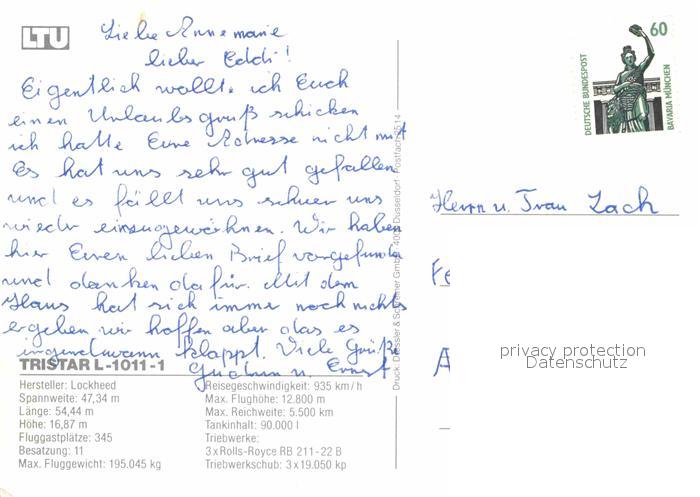 LTU
Liebe Annemarie
lieber Eddi!
Eigentlich wollte ich Euch
einen Urlaubsgruß schicken
ich hatte Eure Adresse nicht mit
Es hat uns sehr gut gefallen
und es fällt uns schwer uns
wieder einzugewöhnen. Wir haben
hier Euren lieben Brief vorgefunden
und danken dafür. Mit dem
Haus hat sich immer noch nichts
ergeben wir hoffen aber das es
irgendwann klappt. Viele Grüße
Gudrun u. Ernst
TRISTAR L-1011-1
Hersteller: Lockheed
Spannweite: 47,34 m
Länge: 54,44 m
Höhe: 16,87 m
Fluggastplätze: 345
Besatzung: 11
Max. Fluggewicht: 195.045 kg
Reisegeschwindigkeit: 935 km/h
Max. Flughöhe: 12.800 m
Max. Reichweite: 5.500 km
Tankinhalt: 90.000 l
Triebwerke:
3xRolls-Royce RB 211-22 B
Triebwerkschub: 3x19.050 kp
Druck: Dressler & Schreiner GmbH · 400 Düsseldorf · Postfach 2514
60
DEUTSCHE BUNDESPOST
BAVARIA MÜNCHEN
Herrn u. Frau Zach
Fe
A
privacy protection
Datenschutz